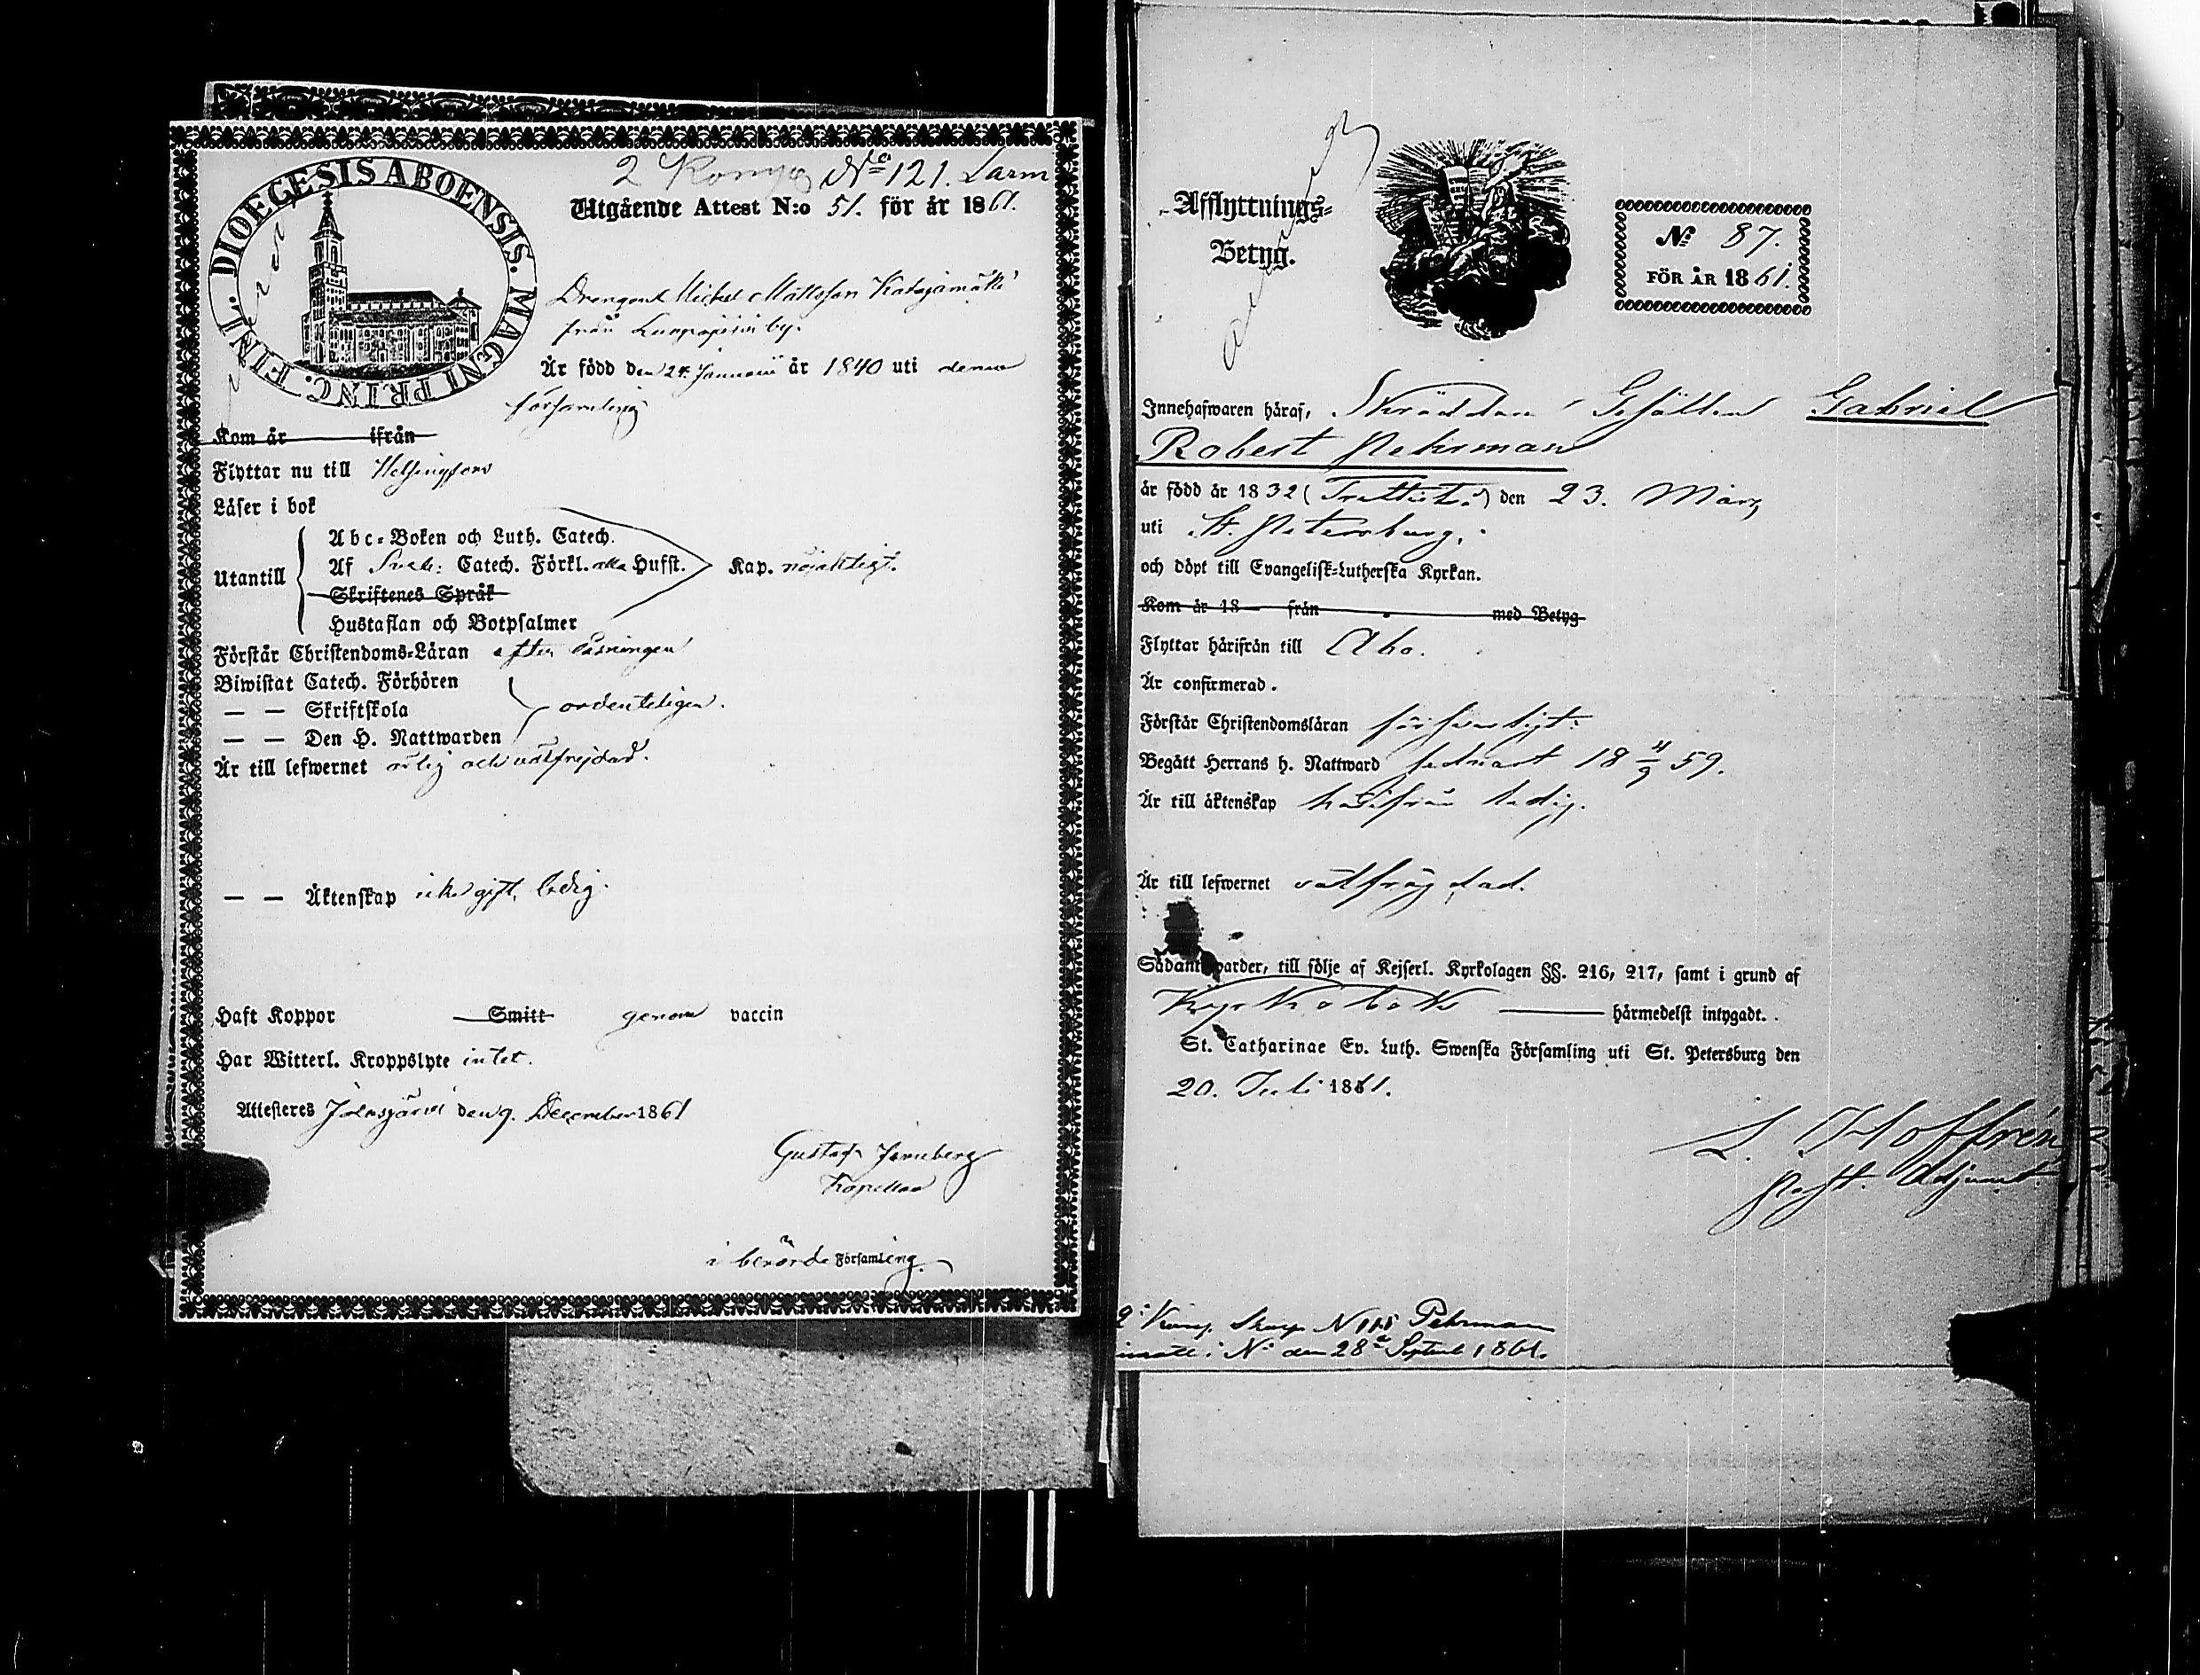 DIOECESIS ABOENSIS. MAGNI PRINC. FINL.
N:o 121. Larm
Utgående Attest N:o 51. för år 1861.
Drengen Michel Mattsson
från by.
Är född den 24 Januarii år 1840 uti denna
församling
Kom år ifrån
Flyttar nu till Helsingfors
Läser i bok
Utantill
Abc-Boken och Luth. Catech.
Af Sveb: Catech. Förkl. alla Husst. Kap. nöjaktigt.
Skriftenes Språk
Hustaflan och Botpsalmer
Förstår Christendoms-Läran efter läsningen
Biwistat Catech. Förhören
— — Skriftskola ordenteligen.
— — Den H. Nattwarden
Är till lefwernet ärlig och välfrejdad.
— — Äktenskap icke gift, ledig.
Haft Koppor Smitt genom vaccin
Har Witterl. Kroppslyte intet.
Attesteres den 9. December 1861
Gustaf
Kapellan
i berörde Församling.
Afflyttnings-
Betyg.
No 87.
FÖR ÅR 1861.
Innehafwaren häraf, Skräddare Gesällen Gabriel
Robert Pehrman
är född år 1832 (Trettiotvå) den 23. Mars
uti St. Petersburg.
och döpt till Evangelisk-Lutherska Kyrkan.
Kom år 18 från med Betyg
Flyttar härifrån till Åbo.
Är confirmerad.
Förstår Christendomsläran försvarligt.
Begått Herrans h. Nattward sednast 18 4/9 59.
Är till äktenskap härifrån ledig.
Är till lefwernet välfrägdad.
Sådant warder, till följe af Kejserl. Kyrkolagen §§. 216, 217, samt i grund af
Kyrkobok härmedelst intygadt.
St. Catharinae Ev. Luth. Swenska Församling uti St. Petersburg den
20. Juli 1861.
L. Hoffrén
Past. Adjunct.
Pehrman
den 28 Septemb 1861.